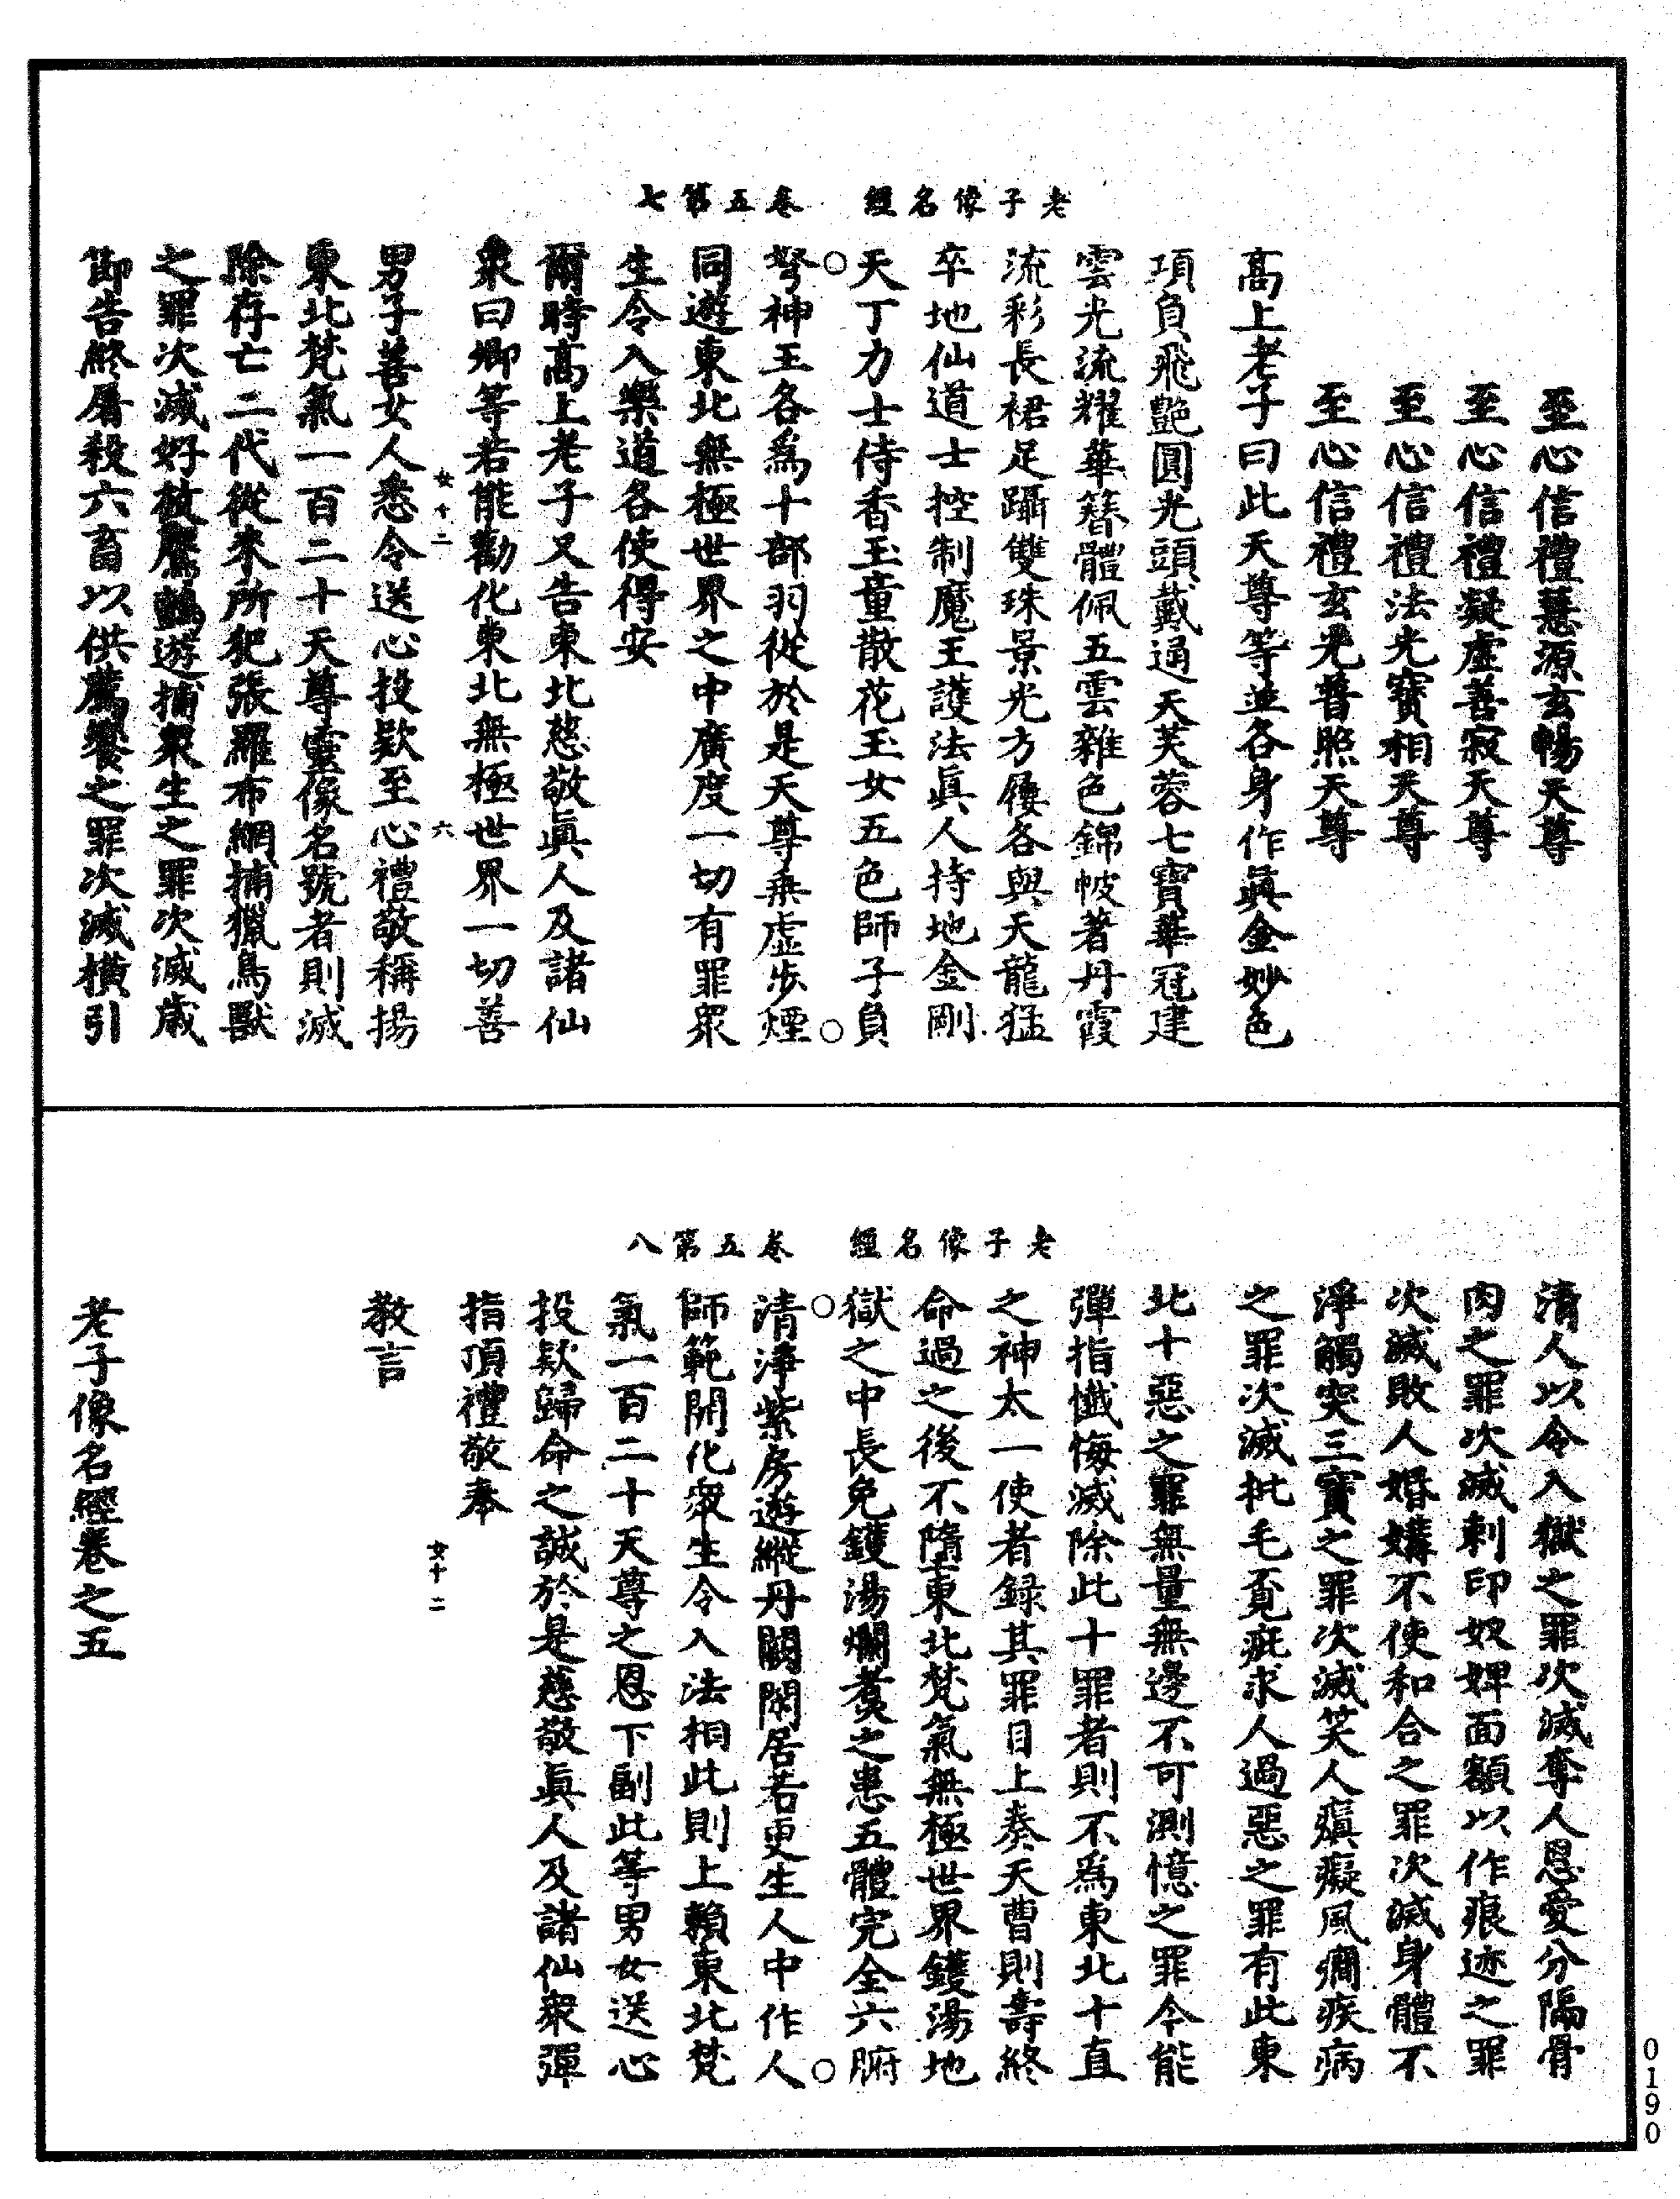 老子像名經　卷五第七
至心信禮慧源玄暢天尊
至心信禮凝虛善寂天尊
至心信禮法光寶相天尊
至心信禮玄光普照天尊
高上老子曰此天尊等並各身作眞金妙色
項負飛艶圓光頭戴通天芙蓉七寶華冠建
雲光流耀華簪體佩五雲雜色錦帔著丹霞
流彩長裙足躡雙珠景光方屨各與天龍猛
卒地仙道士控制魔王護法眞人持地金剛
天丁力士侍香玉童散花玉女五色師子負
弩神王各爲十部羽從於是天尊乘虛步煙
同遊東北無極世界之中廣度一切有罪眾
生令入樂道各使得安
爾時高上老子又告東北慈敬眞人及諸仙
眾曰卿等若能勸化東北無極世界一切善
女十二　六
男子善女人悉令送心投欵至心禮敬稱揚
東北梵氣一百二十天尊靈像名號者則滅
除存亡二代從來所犯張羅布網捕獵鳥獸
之罪次滅好放鷹鷂遊捕眾生之罪次滅歳
節告終屠殺六畜以供薦饗之罪次滅橫引
老子像名經　卷五第八
清人以令入獄之罪次滅奪人恩愛分隔骨
肉之罪次滅刺印奴婢面額以作痕迹之罪
次滅敗人婚媾不使和合之罪次滅身體不
淨觸突三寶之罪次滅笑人瘨癡風癇疾病
之罪次滅 毛覓疵求人過惡之罪有此東
北十惡之罪無量無邊不可測憶之罪今能
彈指懺悔滅除此十罪者則不爲東北十直
之神太一使者録其罪目上奏天曹則壽終
命過之後不墮東北梵氣無極世界鑊湯地
獄之中長免鑊湯爛煑之患五體完全六腑
清淨紫房遊縱丹闕閑居若更生人中作人
師範開化眾生令入法相此則上賴東北梵
氣一百二十天尊之恩下副此等男女送心
投欵歸命之誠於是慈敬眞人及諸仙眾彈
指頂禮敬奉
女十二
教言
老子像名經卷之五
0190